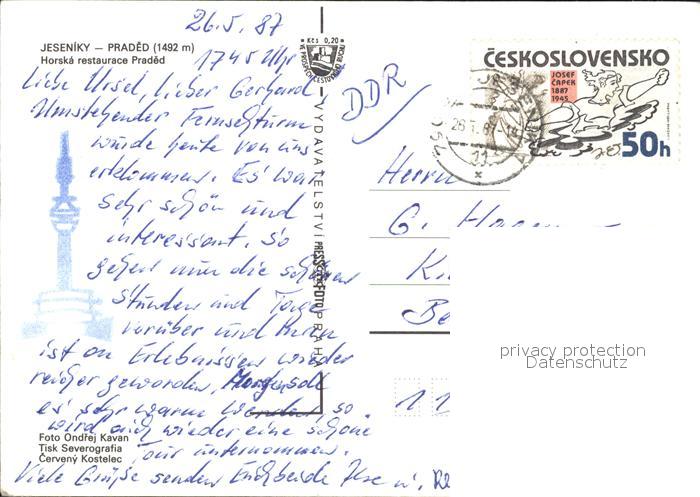 26.5.87
Kčs 0,20
VE PROSPĚCH CESTOVNÍHO RUCHU
JESENÍKY — PRADĚD (1492 m)
Horská restaurace Praděd
1745 Uhr
Liebe Ursel, lieber Gerhard,
Umstehender Fernsehturm
wurde heute von uns
erklommen. Es war
sehr schön und
interessant. So
gehen nun die schönen
Stunden und Tage
vorüber und man
ist an Erlebnissen wieder
reicher geworden. Morgen soll
es sehr warm werden so
wird auch wieder eine schöne
Tour unternommen.
Viele Grüße senden Euch beide Ilse u.
Foto Ondřej Kavan
Tisk Severografia
Červený Kostelec
VYDAVATELSTVÍ PRESSFOTO PRAHA
DDR
ČESKOSLOVENSKO
JOSEF
ČAPEK
1887
1945
50h
Herrn
G.
11
privacy protection
Datenschutz